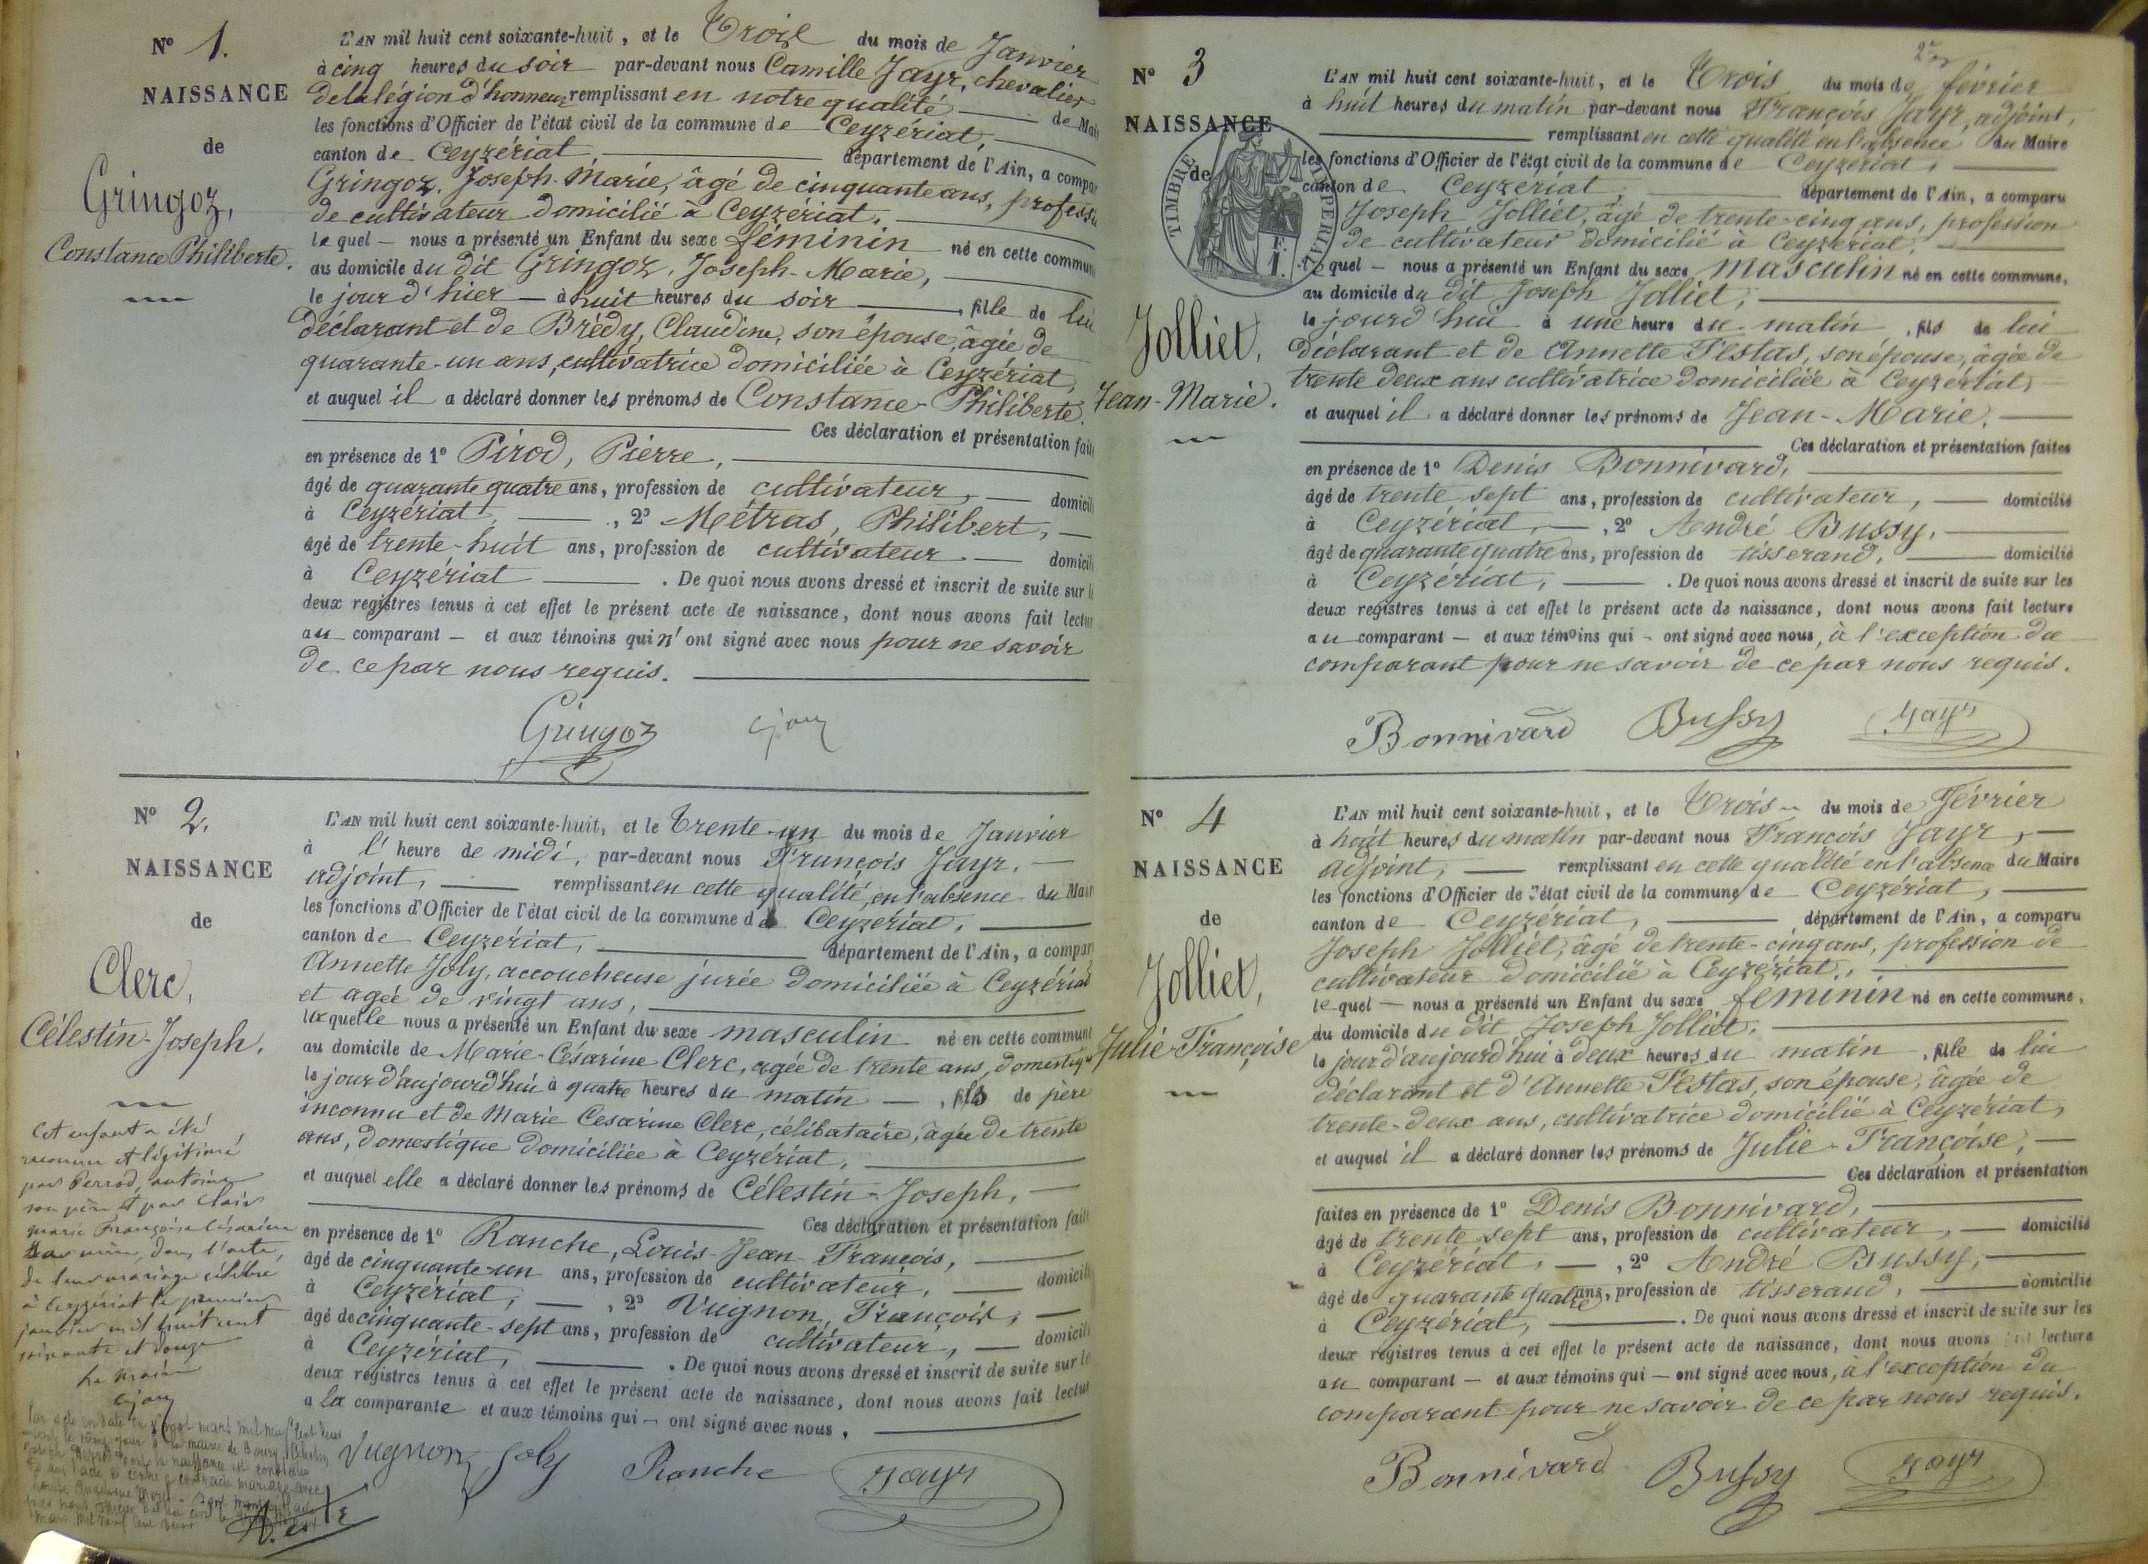 N° 1.
NAISSANCE
de
Gringoz,
Constance Philiberte.
L'AN mil huit cent soixante-huit, et le Trois du mois de Janvier
à cinq heures du soir par-devant nous Camille Jayr, chevalier
de la légion d'honneur remplissant en notre qualité de Mai
les fonctions d'Officier de l'état civil de la commune de Ceyzériat,
canton de Ceyzériat département de l'Ain, a compar
Gringoz, Joseph-Marie, âgé de cinquante ans, professi
de cultivateur domicilié à Ceyzériat,
le quel nous a présenté un Enfant du sexe féminin né en cette commun
au domicile du dit Gringoz, Joseph-Marie,
le jour d'hier à huit heures du soir, fille de lui
déclarant et de Brédy, Claudine, son épouse, âgée de
quarante-un ans, cultivatrice domiciliée à Ceyzériat,
et auquel il a déclaré donner les prénoms de Constance-Philiberte.
Ces déclaration et présentation fait
en présence de 1° Pirod, Pierre,
âgé de quarante quatre ans, profession de cultivateur, domicili
à Ceyzériat, 2° Métras, Philibert,
âgé de trente-huit ans, profession de cultivateur domicili
à Ceyzériat. De quoi nous avons dressé et inscrit de suite sur l
deux registres tenus à cet effet le présent acte de naissance, dont nous avons fait lectur
au comparant et aux témoins qui n'ont signé avec nous pour ne savoir
de ce par nous requis.
Gringoz
N° 2.
NAISSANCE
de
Clerc,
Célestin-Joseph.
Cet enfant a été
reconnu et légitimé
par Perrod, antoine
son père et par Clair
marie Françoise Césarine
sa mère, dans l'acte,
de leur mariage célébré
à Ceyzériat le premier
janvier mil huit cent
soixante et douze
Le Maire
L'AN mil huit cent soixante-huit, et le Trente-un du mois de Janvier
à l'heure de midi, par-devant nous François Jayr,
adjoint, remplissant en cette qualité, en l'absence du Mair
les fonctions d'Officier de l'état civil de la commune de Ceyzériat,
canton de Ceyzériat, département de l'Ain, a compar
Annette Joly, accoucheuse jurée domiciliée à Ceyzériat
et agée de vingt ans,
laquelle nous a présenté un Enfant du sexe masculin né en cette commune
au domicile de Marie-Césarine Clerc, agée de trente ans, domestique
le jour d'aujourd'hui à quatre heures du matin, fils de père
inconnu et de Marie Cesarine Clerc, célibataire, âgée de trente
ans, domestique domiciliée à Ceyzériat,
et auquel elle a déclaré donner les prénoms de Célestin-Joseph,
Ces déclaration et présentation fait
en présence de 1° Ranche, Louis-Jean-François,
âgé de cinquante-un ans, profession de cultivateur, domicili
à Ceyzériat, 2° Vugnon, François,
âgé de cinquante-sept ans, profession de cultivateur, domicili
à Ceyzériat. De quoi nous avons dressé et inscrit de suite sur le
deux registres tenus à cet effet le présent acte de naissance, dont nous avons fait lectur
a la comparante et aux témoins qui ont signé avec nous.
Vugnon Joly Ranche Jayr
N° 3
NAISSANCE
de
TIMBRE IMPERIAL
Jolliet,
Jean-Marie.
L'AN mil huit cent soixante-huit, et le Trois du mois de février
à huit heures du matin par-devant nous François Jayr, adjoint,
remplissant en cette qualité en l'absence du Maire
les fonctions d'Officier de l'état civil de la commune de Ceyzériat,
canton de Ceyzériat département de l'Ain, a comparu
Joseph Jolliet, âgé de trente-cinq ans, profession
de cultivateur domicilié à Ceyzériat,
le quel nous a présenté un Enfant du sexe masculin né en cette commune,
au domicile du dit Joseph Jolliet,
le jourd'hui à une heure du matin, fils de lui
déclarant et de Annette Pestas, son épouse, âgée de
trente deux ans cultivatrice domiciliée à Ceyzériat,
et auquel il a déclaré donner les prénoms de Jean-Marie.
Ces déclaration et présentation faites
en présence de 1° Denis Bonnivard,
âgé de trente sept ans, profession de cultivateur, domicilié
à Ceyzériat, 2° André Bussy,
âgé de quarante quatre ans, profession de tisserand, domicilié
à Ceyzériat,. De quoi nous avons dressé et inscrit de suite sur les
deux registres tenus à cet effet le présent acte de naissance, dont nous avons fait lecture
au comparant et aux témoins qui ont signé avec nous, à l'exception du
comparant pour ne savoir de ce par nous requis.
Bonnivard Bussy Jayr
N° 4
NAISSANCE
de
Jolliet,
Julie-Françoise
L'AN mil huit cent soixante-huit, et le Trois du mois de Février
à huit heures du matin par-devant nous François Jayr,
adjoint, remplissant en cette qualité en l'absence du Maire
les fonctions d'Officier de l'état civil de la commune de Ceyzériat,
canton de Ceyzériat, département de l'Ain, a comparu
Joseph Jolliet, âgé de trente-cinq ans, profession de
cultivateur domicilié à Ceyzériat,
le quel nous a présenté un Enfant du sexe féminin né en cette commune,
au domicile du dit Joseph Jolliet,
le jour d'aujourd'hui à deux heures du matin, fille de lui
déclarant et d'Annette Pestas, son épouse, âgée de
trente-deux ans, cultivatrice domicilié à Ceyzériat,
et auquel il a déclaré donner les prénoms de Julie-Françoise,
Ces déclaration et présentation
faites en présence de 1° Denis Bonnivard,
âgé de trente sept ans, profession de cultivateur, domicilié
à Ceyzériat, 2° André Bussy,
âgé de quarante quatre ans, profession de tisserand, domicilié
à Ceyzériat,. De quoi nous avons dressé et inscrit de suite sur les
deux registres tenus à cet effet le présent acte de naissance, dont nous avons fait lecture
au comparant et aux témoins qui ont signé avec nous, à l'exception du
comparant pour ne savoir de ce par nous requis.
Bonnivard Bussy Jayr